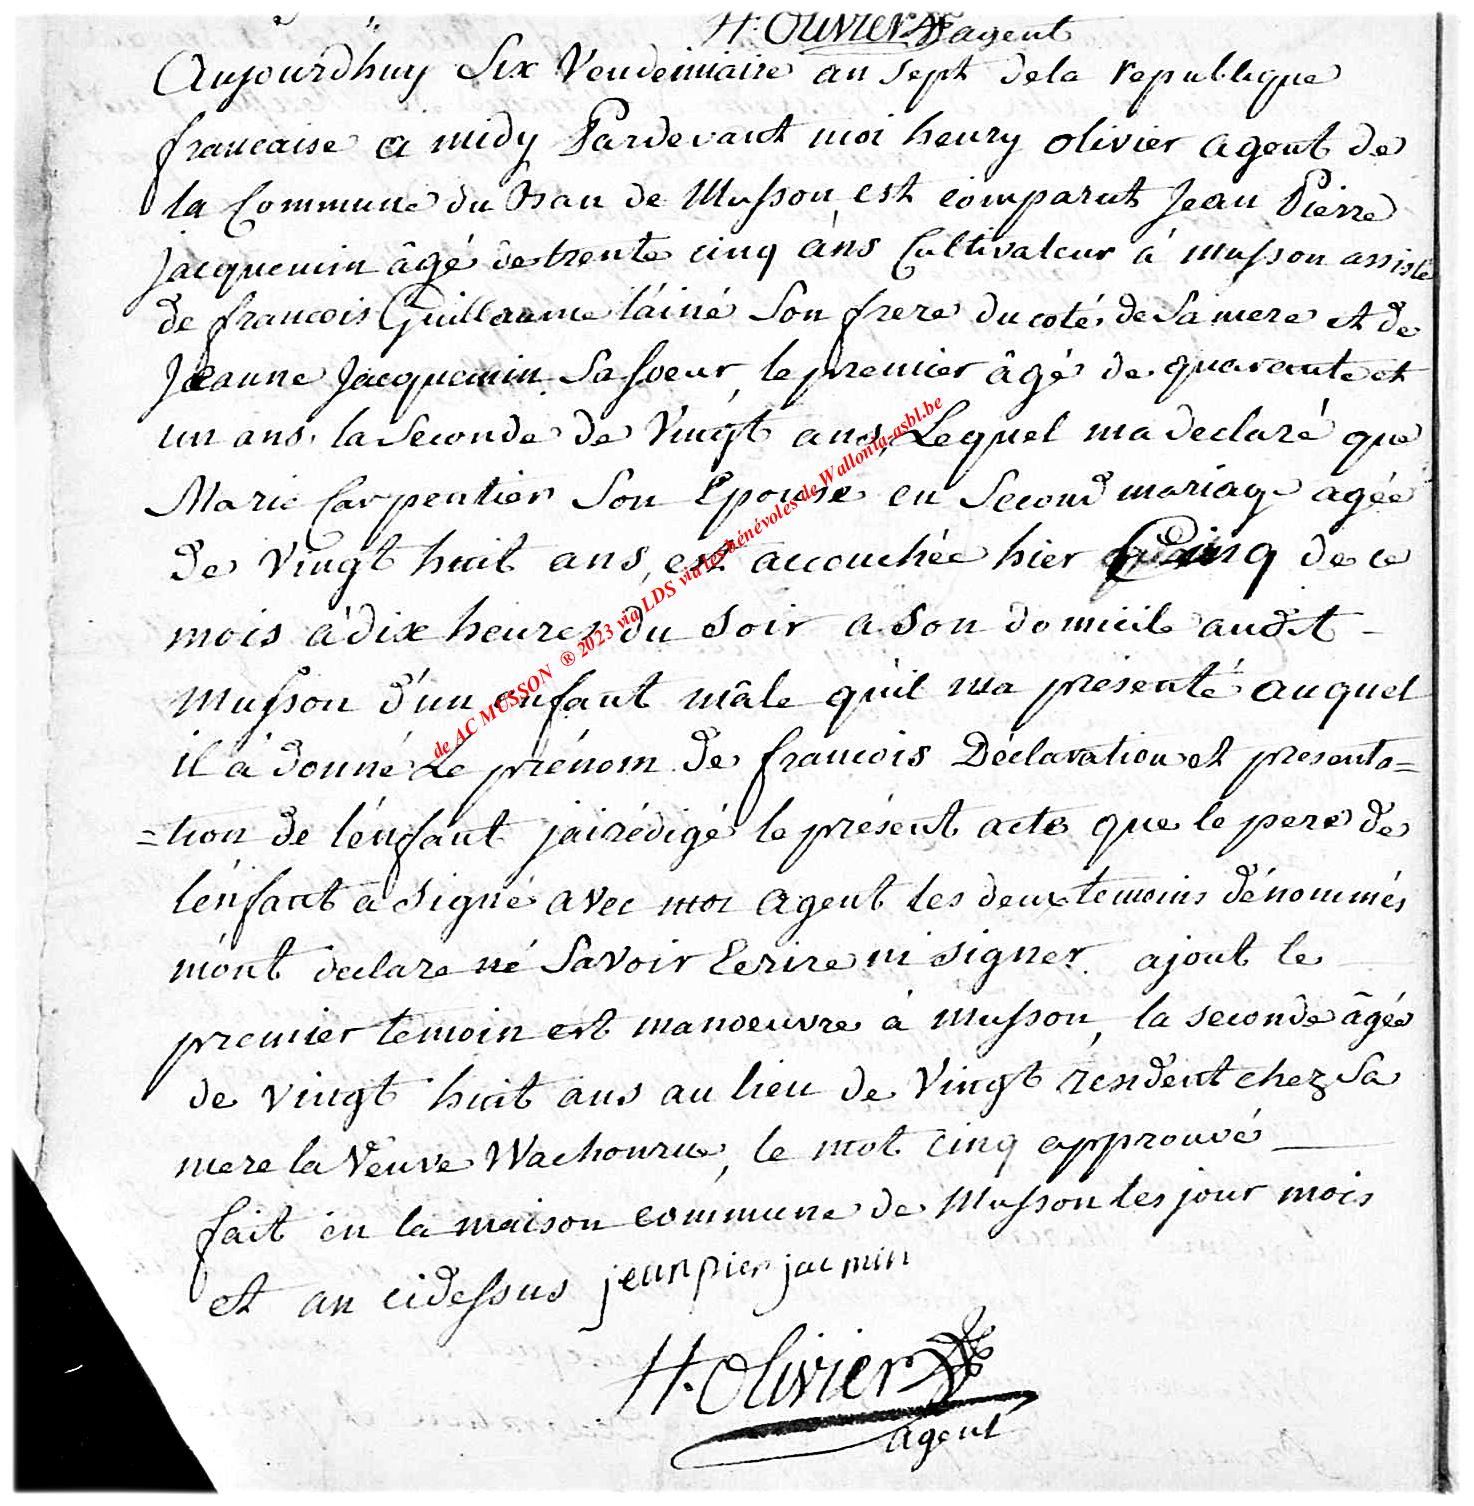 H. Olivier agent
Aujourdhuy Six Vendemiaire an sept dela republique
francaise a midy Pardevant moi henry olivier agent de
la Commune du Ban de Musson, est comparut Jean Pierre
jacquemin âgé de trente cinq ans Cultivateur à musson assisté
de francois Guillaume l'ainé Son frere du coté de Sa mere et de
Jeanne Jacquemin Sa Soeur, le premier âgé de quarante et
un ans, la Seconde de Vingt ans, Lequel ma declaré que
Marie Carpentier Son Epouse en Second mariage agée
de Vingt huit ans, est accouchée hier Cinq de ce
mois a dix heures du Soir a Son domicil audit -
Musson d'un enfant mâle qu'il ma présenté auquel
il à donné Le prénom de francois Déclaration et presenta=
=tion de l'énfant jai rédigé le présent acte que le pere de
l'énfant a Signé avec moi agent les deux temoins dénommés
m'ont declare né Savoir Ecrire ni signer. ajout le
premier temoin est manoeuvre à Musson, la seconde âgée
de vingt huit ans au lieu de Vingt résident chez Sa
mere la Veuve Wachouru, le mot cinq approuvé
fait en la maison commune de Musson les jour mois
et an cidessus jeanpier jacmin
H. Olivier
agent
de AC MUSSON ® 2023 via LDS via les bénévoles de Wallonia-asbl.be